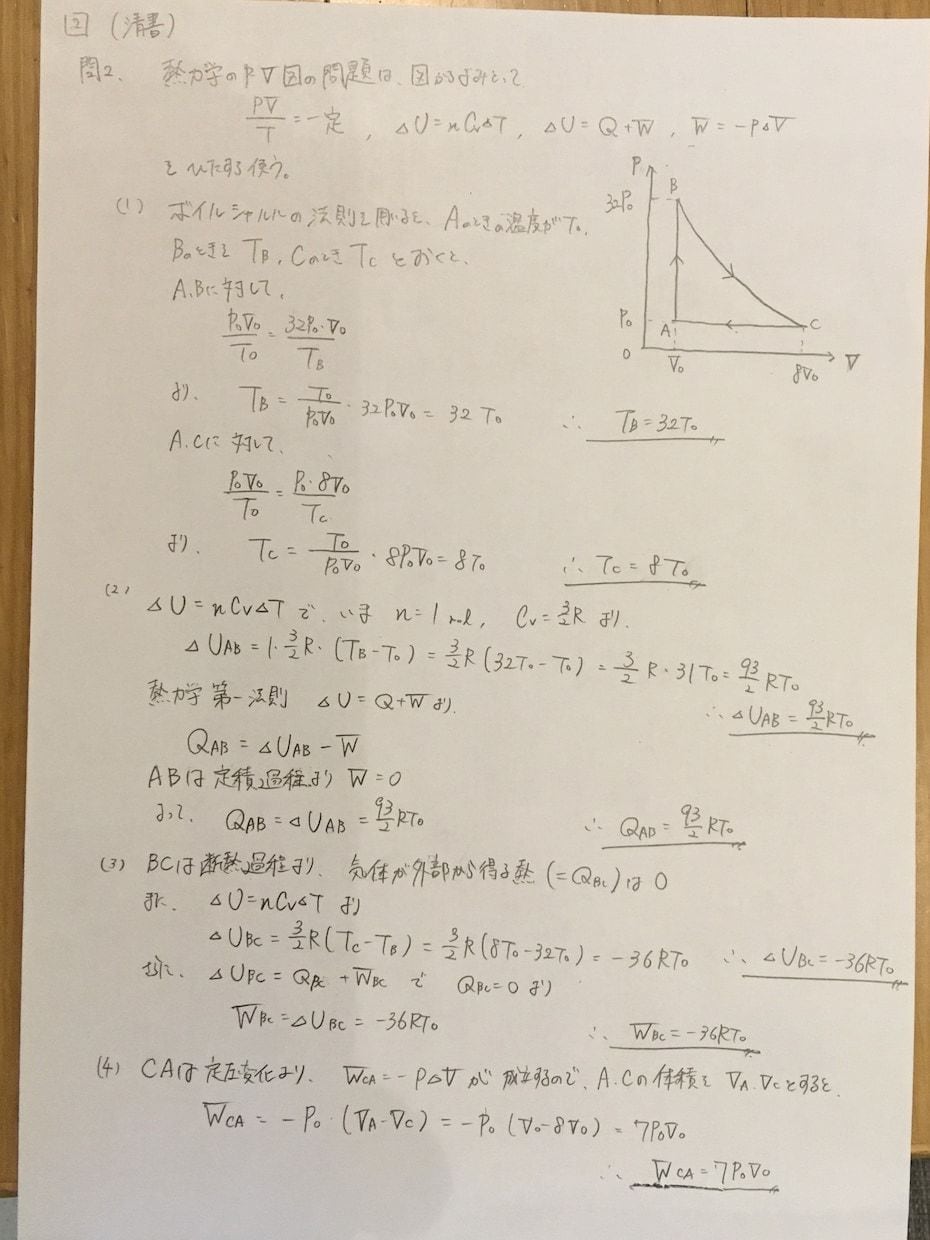 2 (清書)
問2. 熱力学のPV図の問題は、図からよみとって
PV/T = 一定 , △U = nCv△T , △U = Q + W , W = -P△V
をひたすら使う。
P
B
32P₀
P₀
A
C
0
V₀
8V₀
V
(1) ボイルシャルルの法則を用いると、Aのときの温度がT₀,
BのときをTB, CのときTCとおくと、
A.Bに対して、
P₀V₀/T₀ = 32P₀・V₀/TB
より、 TB = T₀/P₀V₀ ・ 32P₀V₀ = 32 T₀ ∴ TB = 32T₀
A.Cに対して、
P₀V₀/T₀ = P₀・8V₀/TC
より、 TC = T₀/P₀V₀ ・ 8P₀V₀ = 8T₀ ∴ TC = 8T₀
(2) △U = nCv△T で、いま n = 1 mol, Cv = 3/2 R より、
△UAB = 1・3/2 R・(TB - T₀) = 3/2 R (32T₀ - T₀) = 3/2 R・31T₀ = 93/2 RT₀
∴ △UAB = 93/2 RT₀
熱力学第一法則 △U = Q + W より、
QAB = △UAB - W
ABは定積過程より W = 0
よって、 QAB = △UAB = 93/2 RT₀ ∴ QAB = 93/2 RT₀
(3) BCは断熱過程より、気体が外部から得る熱 (= QBC) は 0
また、 △U = nCv△T より
△UBC = 3/2 R (TC - TB) = 3/2 R (8T₀ - 32T₀) = -36RT₀ ∴ △UBC = -36RT₀
△UBC = QBC + WBC で QBC = 0 より
WBC = △UBC = -36RT₀ ∴ WBC = -36RT₀
(4) CAは定圧変化より、 WCA = -P△V が成立するので、A.Cの体積を VA, VCとすると、
WCA = -P₀・(VA - VC) = -P₀ (V₀ - 8V₀) = 7P₀V₀
∴ WCA = 7P₀V₀